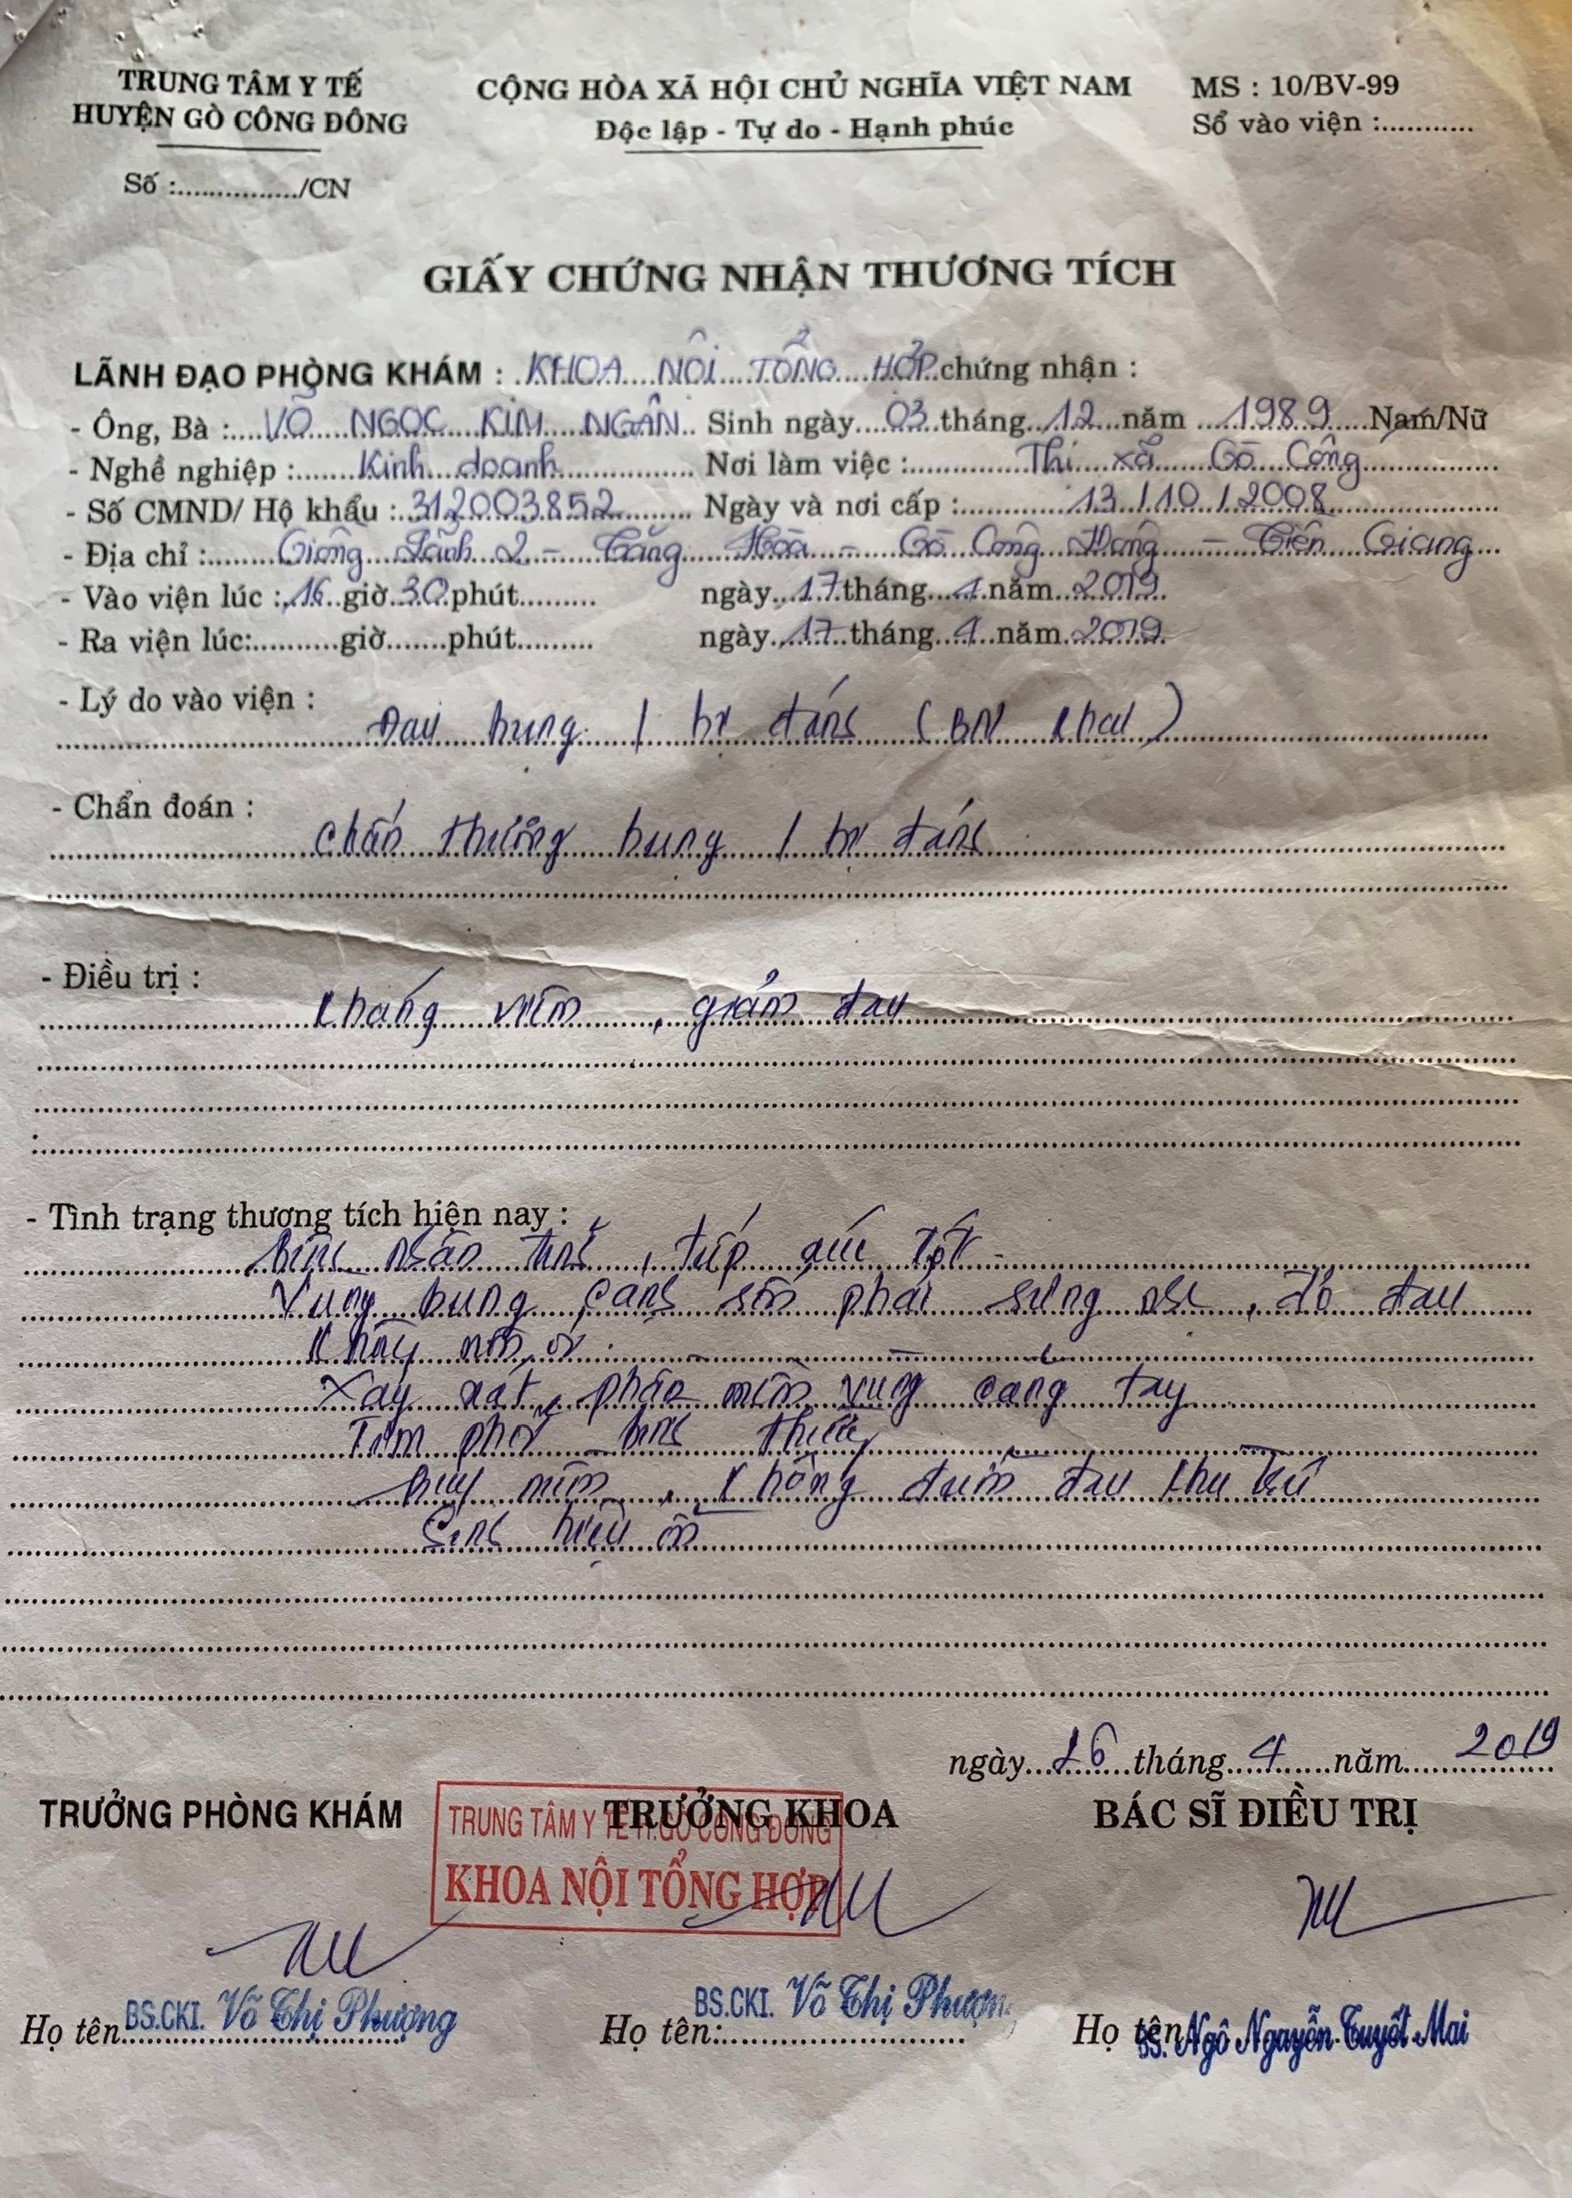 TRUNG TÂM Y TẾ
HUYỆN GÒ CÔNG ĐÔNG
Số :.............../CN
CỘNG HÒA XÃ HỘI CHỦ NGHĨA VIỆT NAM
Độc lập - Tự do - Hạnh phúc
MS : 10/BV-99
Số vào viện :............
GIẤY CHỨNG NHẬN THƯƠNG TÍCH
LÃNH ĐẠO PHÒNG KHÁM : KHOA NỘI TỔNG HỢP chứng nhận :
- Ông, Bà : VÕ NGỌC KIM NGÂN Sinh ngày 03 tháng 12 năm 1989 Nam/Nữ
- Nghề nghiệp : Kinh doanh Nơi làm việc : Thị xã Gò Công
- Số CMND/ Hộ khẩu : 312003852 Ngày và nơi cấp : 13/10/2008
- Địa chỉ : Giồng Lãnh 2 - Tăng Hòa - Gò Công Đông - Tiền Giang
- Vào viện lúc : 16 giờ 30 phút ngày 17 tháng 4 năm 2019
- Ra viện lúc:..........giờ.......phút......... ngày 17 tháng 4 năm 2019
- Lý do vào viện :
Đau bụng / bị đánh (BN khai)
- Chẩn đoán :
Chấn thương bụng / bị đánh
- Điều trị :
Kháng viêm, giảm đau
- Tình trạng thương tích hiện nay :
Bệnh nhân tỉnh, tiếp xúc tốt
Vùng bụng cạnh sườn phải sưng nề, đỏ đau
Xây xát phần mềm vùng cẳng tay
Tim phổi bình thường
Bụng mềm, không điểm đau khu trú
Sinh hiệu ổn
ngày 26 tháng 4 năm 2019
TRƯỞNG PHÒNG KHÁM
TRƯỞNG KHOA
BÁC SĨ ĐIỀU TRỊ
TRUNG TÂM Y TẾ H.GÒ CÔNG ĐÔNG
KHOA NỘI TỔNG HỢP
Họ tên BS.CKI. Võ Thị Phượng
Họ tên: BS.CKI. Võ Thị Phượng
Họ tên BS. Ngô Nguyễn Tuyết Mai